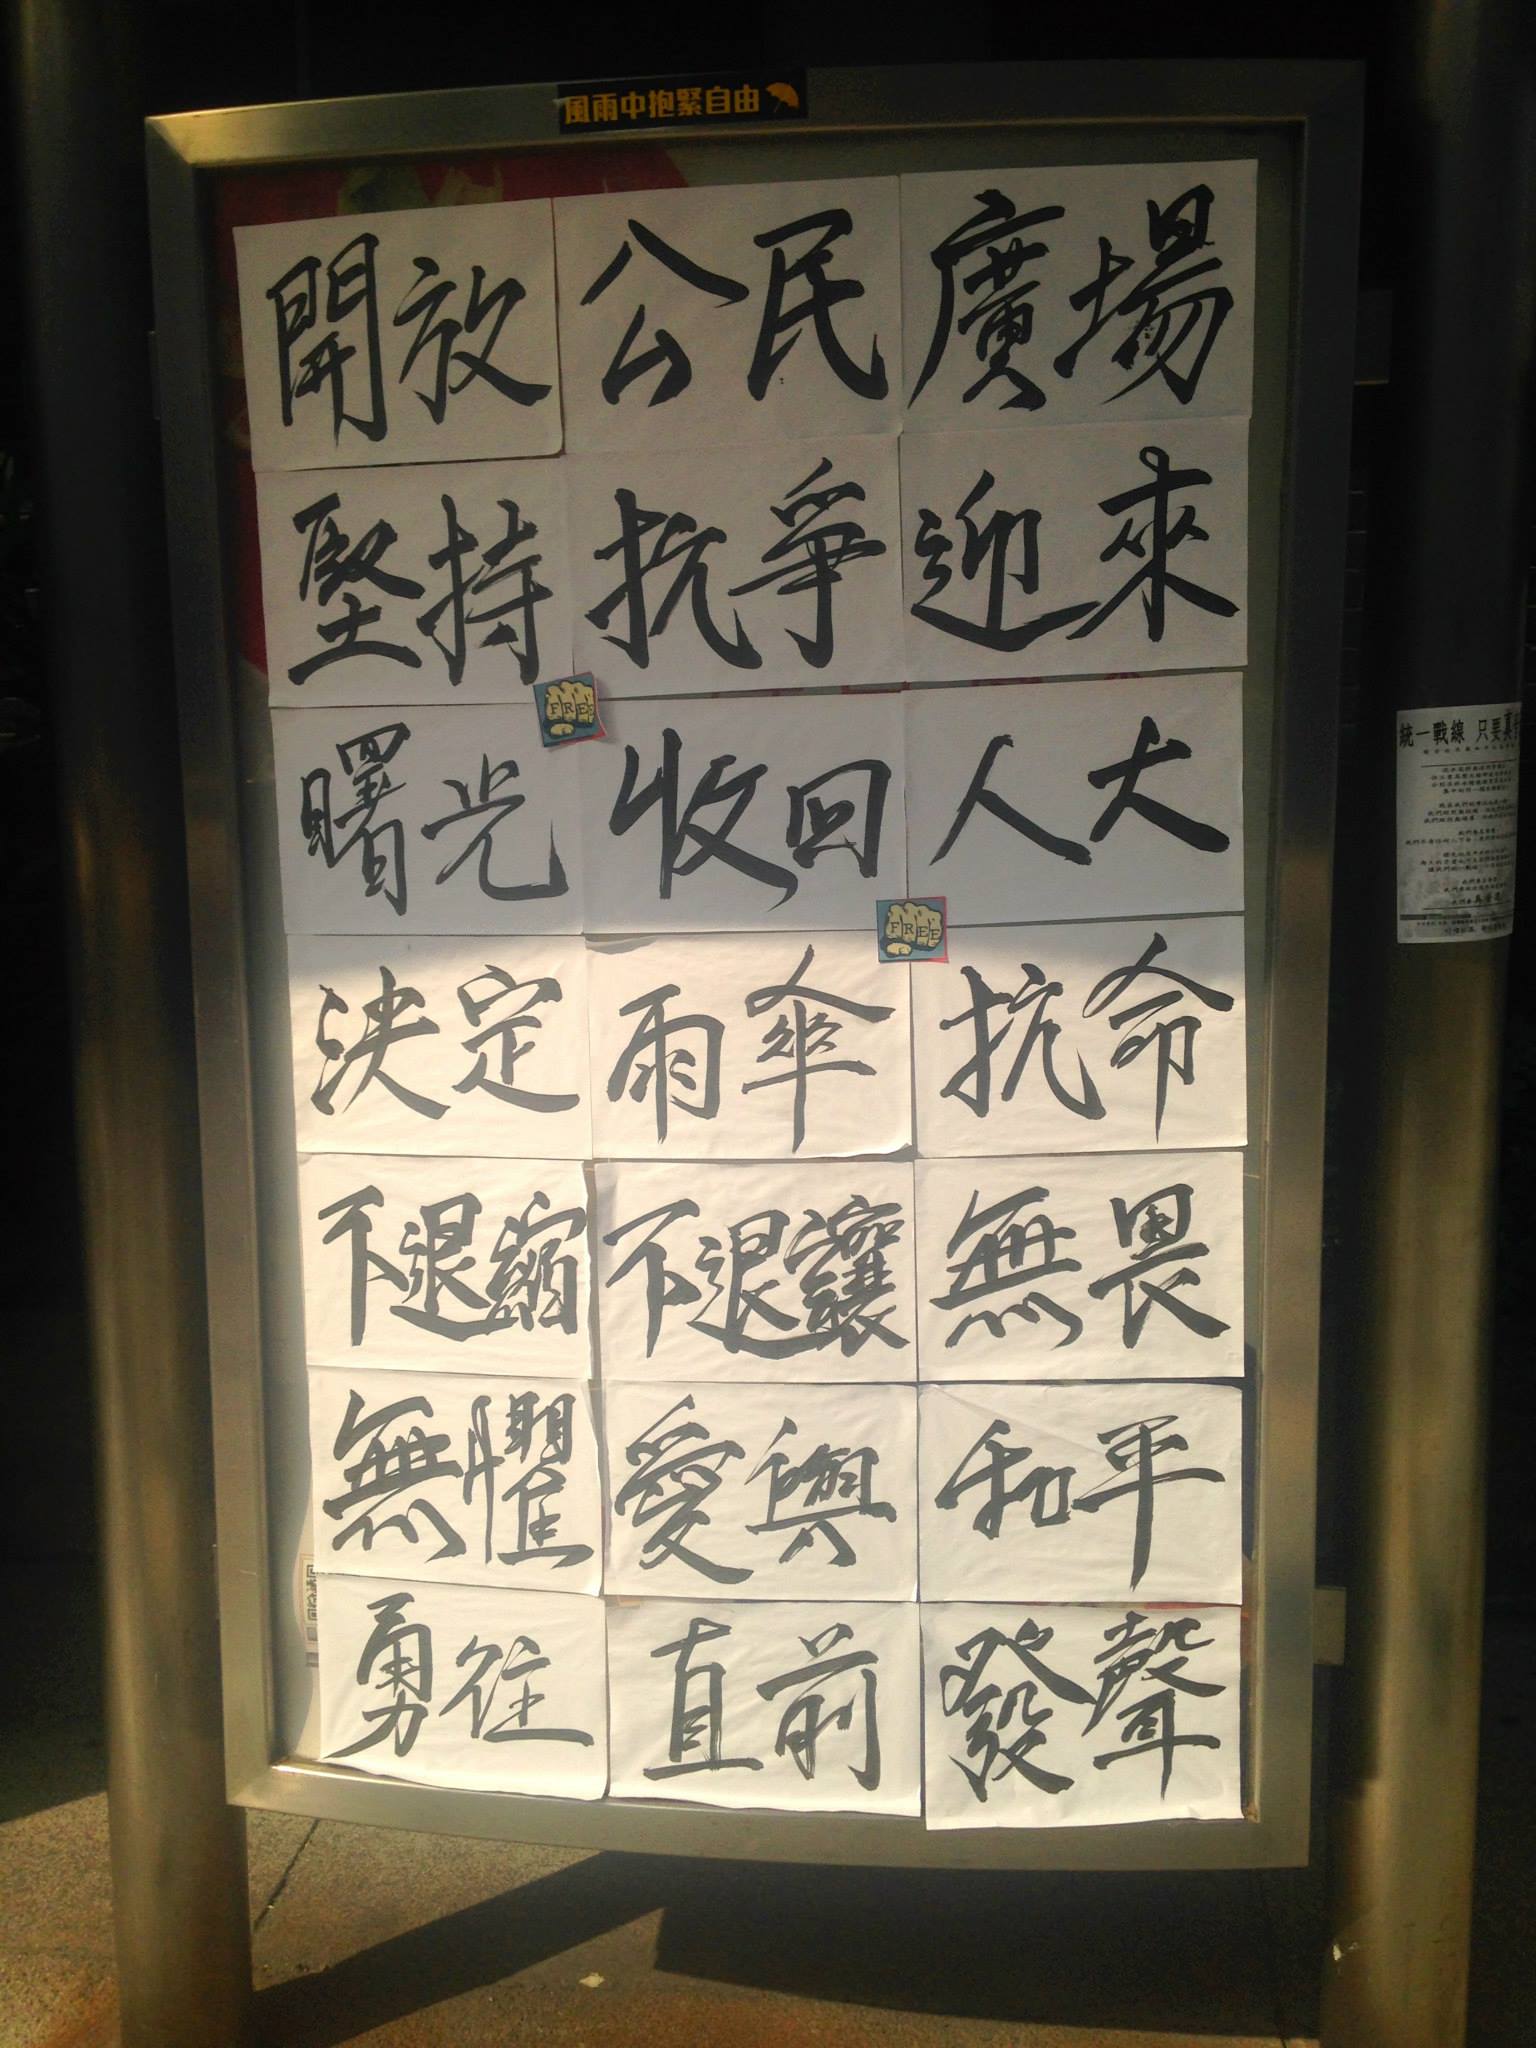 風雨中抱緊自由
開放 公民 廣場
堅持 抗爭 迎來
曙光 收回 人大
決定 雨傘 抗命
不退縮 不退讓 無畏
無懼 愛與 和平
勇往 直前 發聲
FREE
FREE
統一戰線 只要真